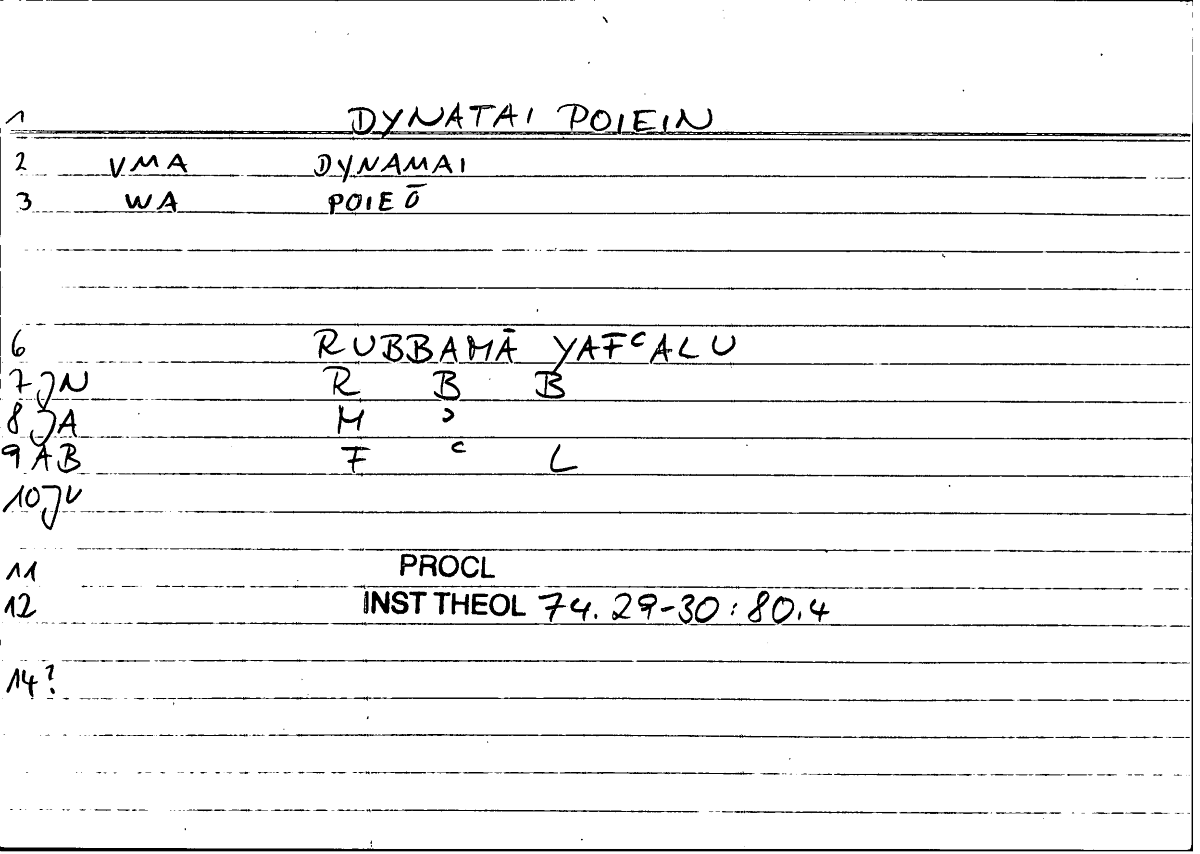 1 DYNATAI POIEIN
2 VMA DYNAMAI
3 WA POIEŌ
6 RUBBAMĀ YAFᶜALU
7 JN R B B
8 JA M ʾ
9 AB F ᶜ L
10 JV
11 PROCL
12 INST THEOL 74.29-30:80.4
14?